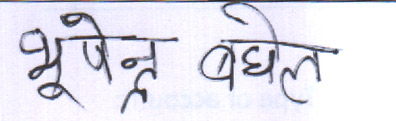 भूपेन्द्र बघेल